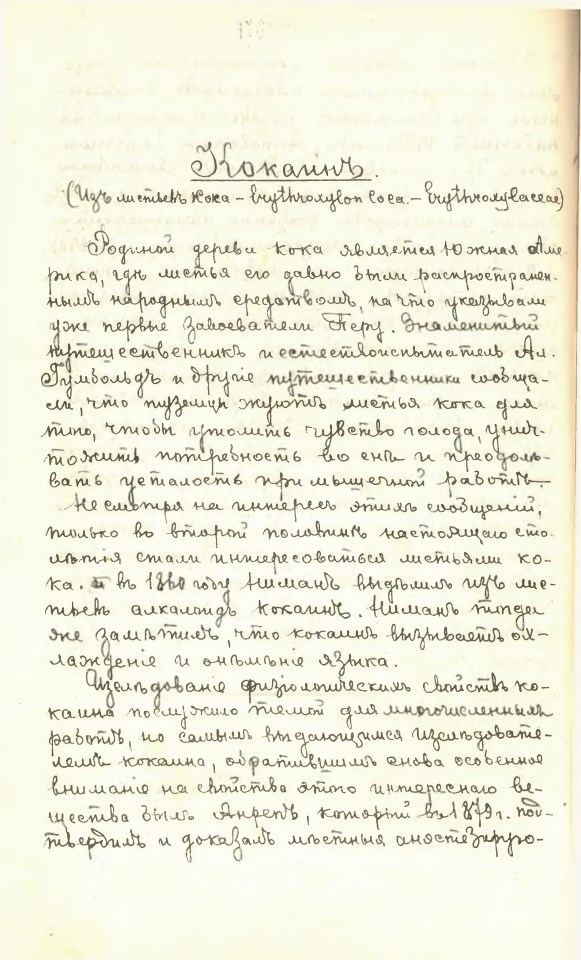 Кокаинъ.
(Изъ листьевъ кока – Erythroxylon Coca. – Erythroxylaceae)
Родиной дерева кока является Южная Аме-
рика, гдѣ листья его давно были распространен-
нымъ народнымъ средствомъ, на что указывали
уже первые завоеватели Перу. Знаменитый
путешественникъ и естествоиспытатель Ал.
Гумбольдъ и другіе путешественники сообща-
ли, что туземцы жуютъ листья кока для
того, чтобы утолить чувство голода, унич-
тожить потребность во снѣ и преодолѣ-
вать усталость при мышечной работѣ.
Не смотря на интересъ этихъ сообщеній,
только во второй половинѣ настоящаго сто-
лѣтія стали интересоваться листьями ко-
ка. въ 1860 году Ниманъ выдѣлилъ изъ лис-
тьевъ алкалоидъ кокаинъ. Ниманъ тогда
же замѣтилъ, что кокаинъ вызываетъ ох-
лажденіе и онѣмѣніе языка.
Изслѣдованіе физіологическихъ свойствъ ко-
каина послужило темой для многочисленныхъ
работъ, но самымъ выдающимся изслѣдовате-
лемъ кокаина, обратившимъ снова особенное
вниманіе на свойства этого интереснаго ве-
щества былъ Анрепъ, который въ 1879 г. под-
твердилъ и доказалъ мѣстныя анэстезирую-